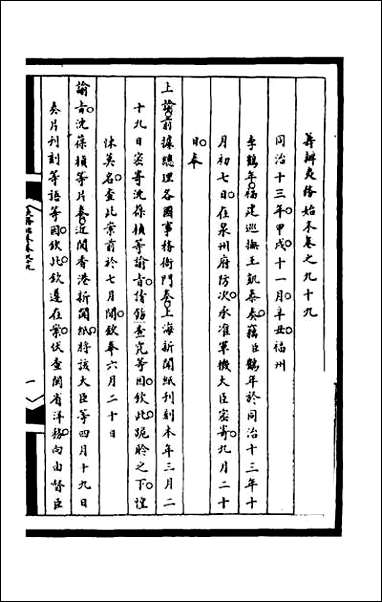 籌辦夷務始末卷之九十九
同治十三年甲戌十一月辛丑福州
李鶴年福建巡撫王凱泰奏竊臣鶴年於同治十三年十
月初七日在泉州府防次承准軍機大臣密寄九月二十
日奉
上諭前據總理各國事務衙門奏上海新聞紙刊刻本年三月二
十九日密寄沈葆楨等諭旨請飭查究等因欽此跪聆之下惶
悚莫名查此案前於七月間欽奉六月二十日
諭旨沈葆楨等片奏近閱香港新聞紙將該大臣等四月十九日
奏片刊刻等語等因欽此欽遵在案伏查閩省洋務向由督臣
一